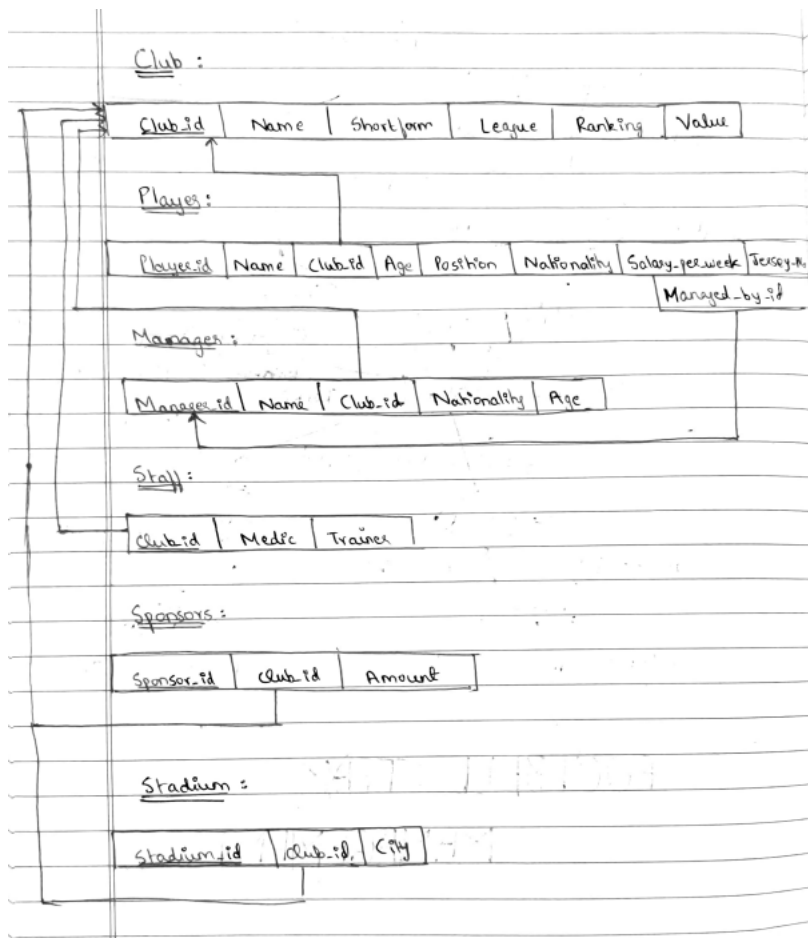 Club :
Club_id Name Shortform League Ranking Value
Player :
Player_id Name Club_id Age Position Nationality Salary_per_week Jersey_No
Managed_by_id
Manager :
Manager_id Name Club_id Nationality Age
Staff :
Club_id Medic Trainer
Sponsors :
Sponsor_id Club_id Amount
Stadium :
Stadium_id Club_id City